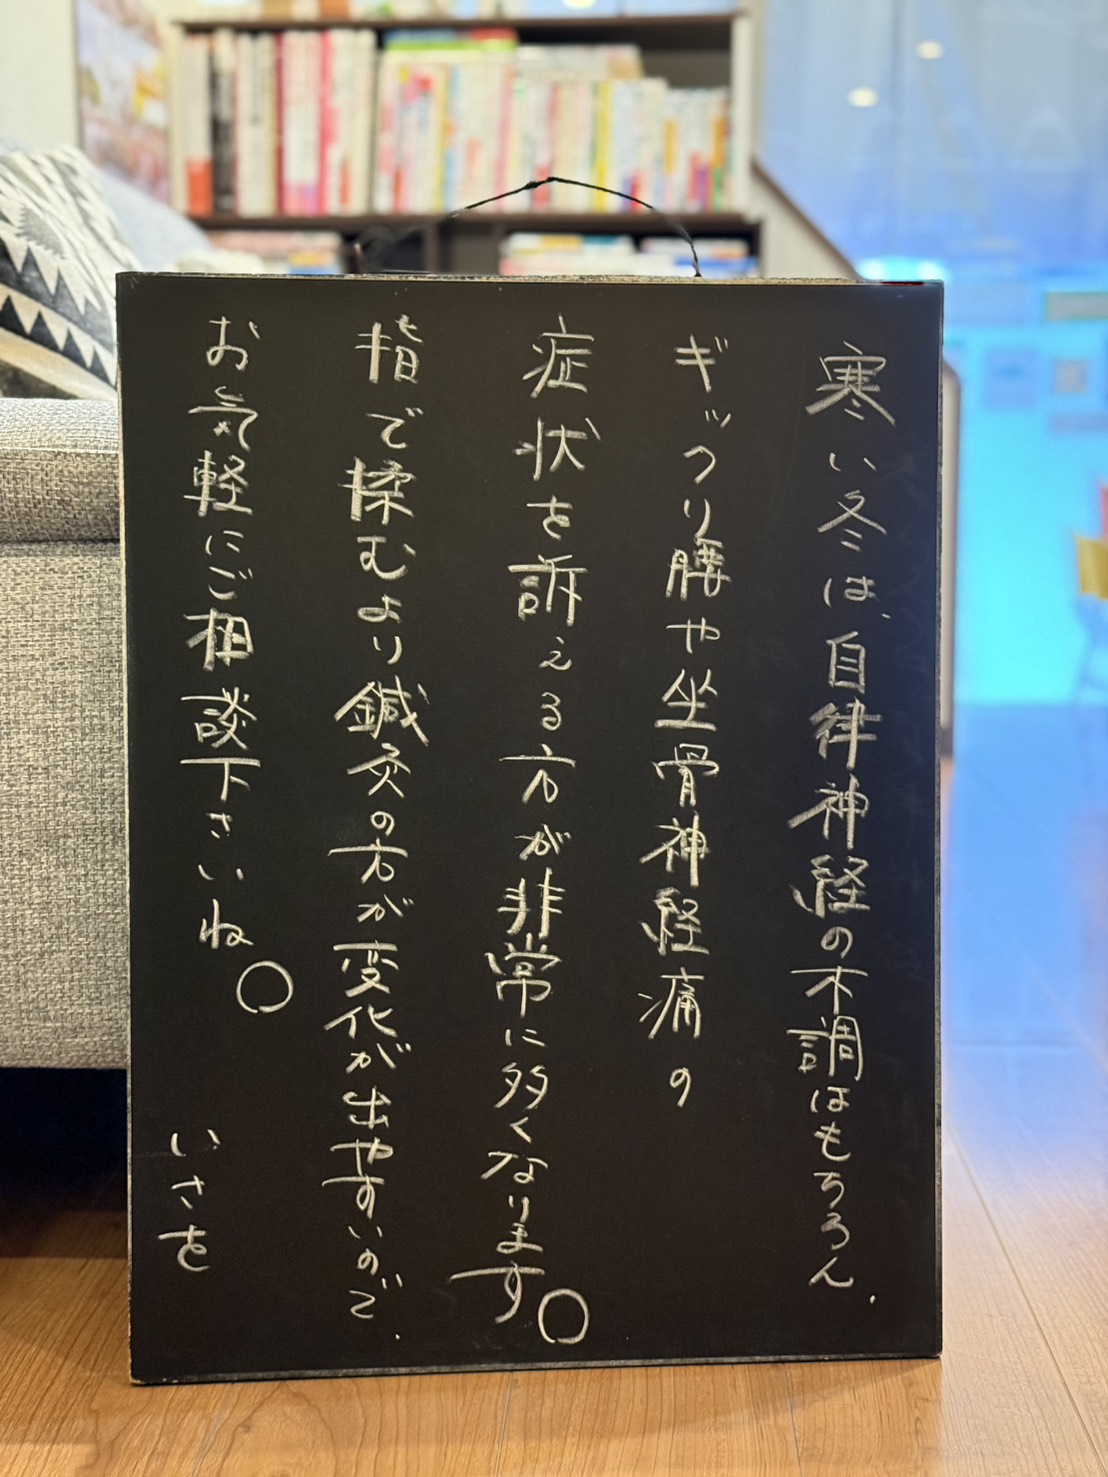 寒い冬は、自律神経の不調はもちろん、
ギックリ腰や坐骨神経痛の
症状を訴える方が非常に多くなります。
指で揉むより鍼灸の方が変化が出やすいので、
お気軽にご相談下さいね。
いさを